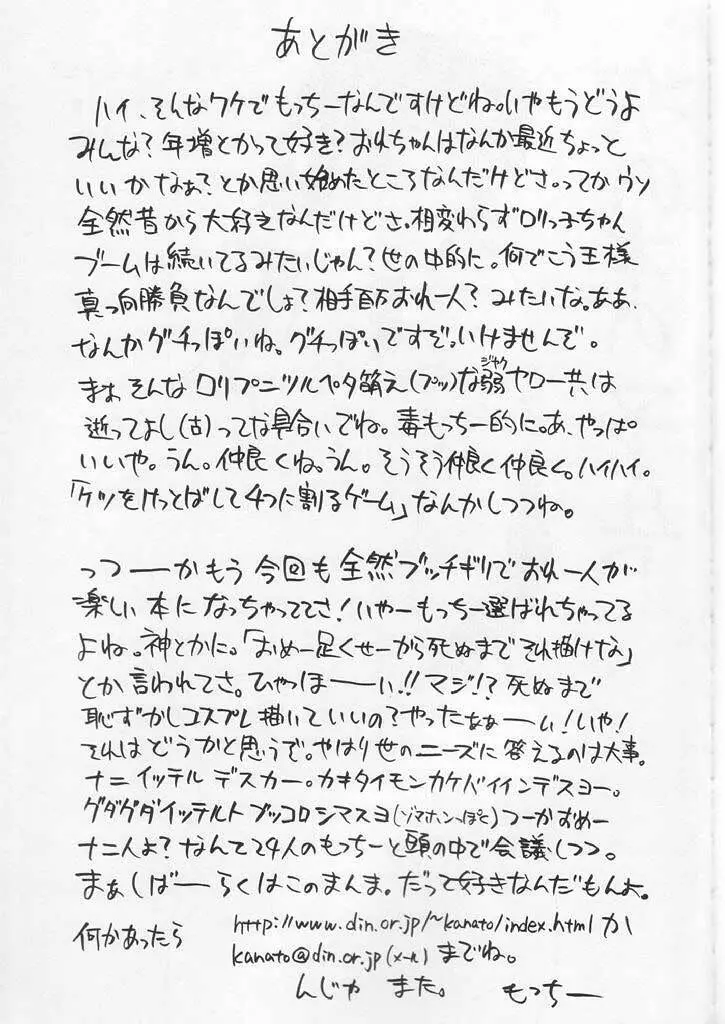 あとがき
ハイ、そんなワケでもっちーなんですけどね。いやもうどうよ
みんな?年増とかって好き?おれちゃんはなんか最近ちょっと
いいかなぁ?とか思い始めたところなんだけどさ。ってかウソ
全然昔から大好きなんだけどさ。相変わらずロリっ子ちゃん
ブームは続いてるみたいじゃん?世の中的に。何でこう王様
真っ向勝負なんでしょ?相手百万おれ一人?みたいな。ああ、
なんかグチっぽいね。グチっぽいですぞ。いけませんぞ。
まぁそんなロリプニツルペタ萌え(プッ)な弱ヤロー共は
ジャク
逝ってよし(古)ってな具合いでね。毒もっちー的に。あ、やっぱ
いいや。うん。仲良くね。うん。そうそう仲良く仲良く。ハイハイ。
「ケツをけっとばして4つに割るゲーム」なんかしつつね。
っつーかもう今回も全然ブッチギリでおれ一人が
楽しい本になっちゃっててさ!いやーもっちー選ばれちゃってる
よね。神とかに。「おめー足くせーから死ぬまでそれ描けな」
とか言われてさ。ひゃっほーい!!マジ!?死ぬまで
恥ずかしコスプレ描いていいの?やったなぁーい!いや!
それはどうかと思うで。やはり世のニーズに答えるのは大事。
ナニイッテルデスカー。カキタイモンカケバイインデスヨー。
グダグダイッテルトブッコロシマスヨ(ゾマホンっぽく)つーかおめー
ナニ人よ?なんて24人のもっちーと頭の中で会議しつつ。
まぁしばーらくはこのまんま。だって好きなんだもんよ。
何かあったら http://www.din.or.jp/~kanato/index.html か
kanato@din.or.jp(メール)までね。
んじゃ また。 もっちー